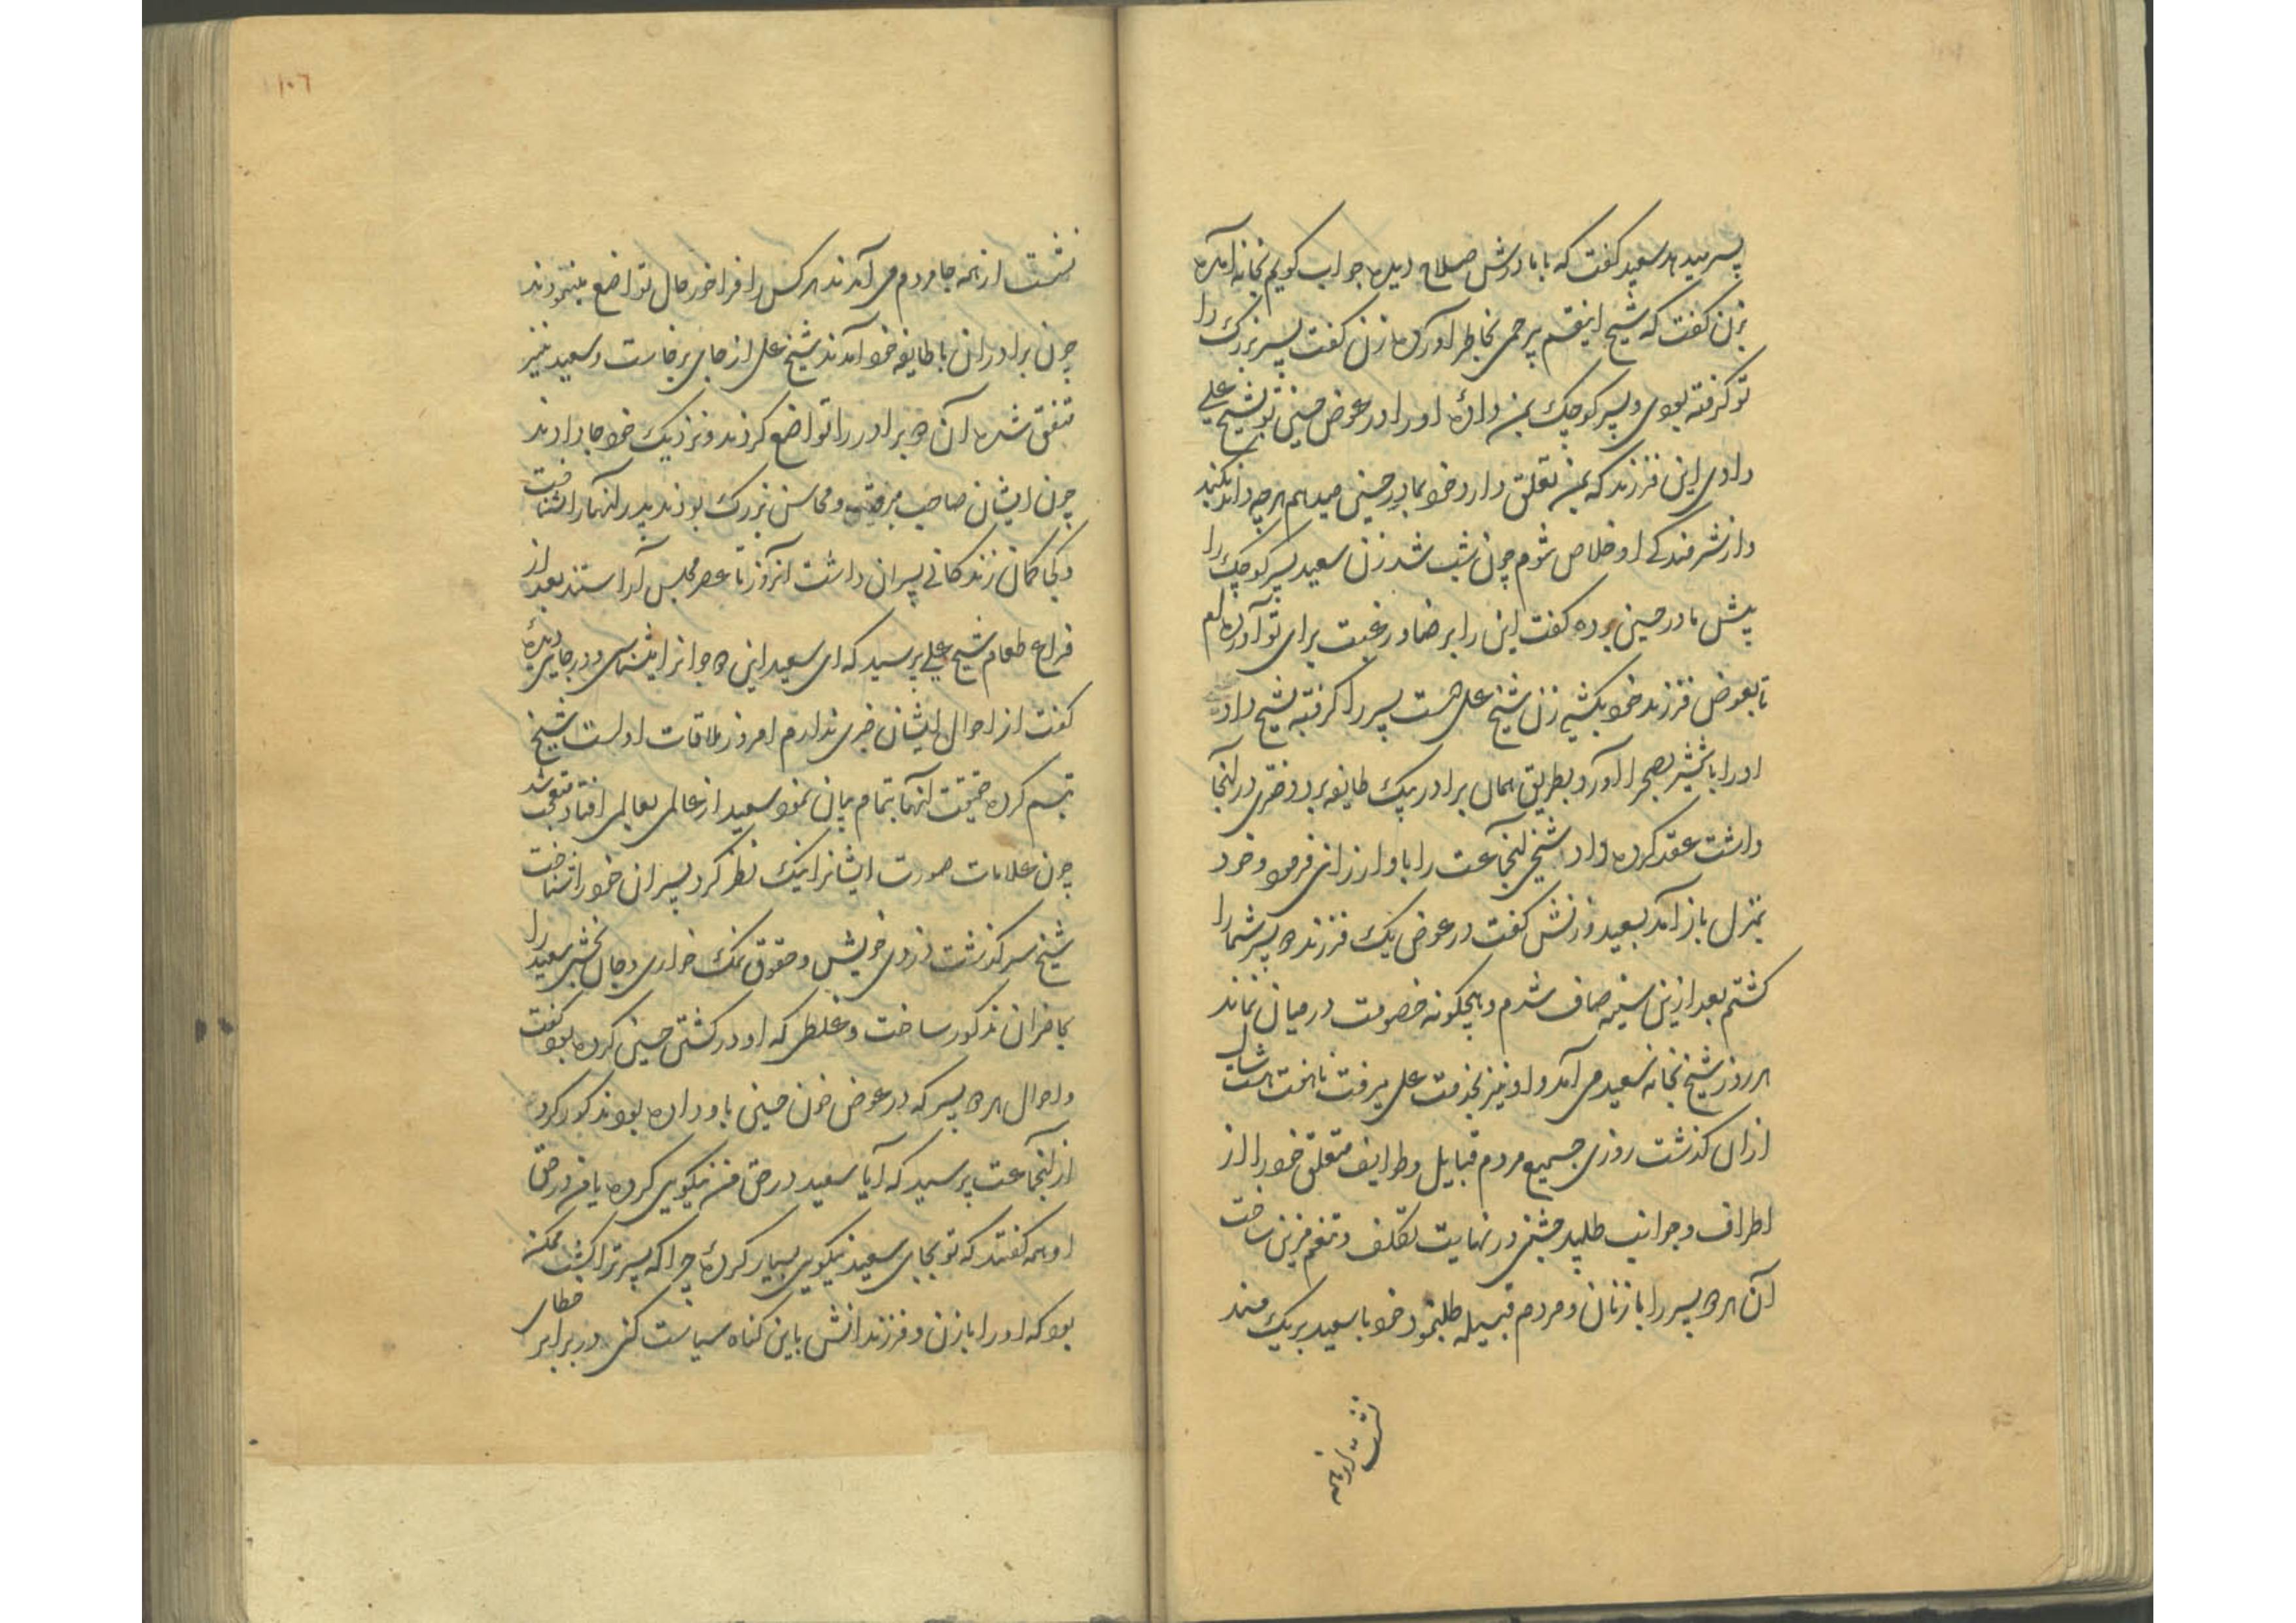 پسر میدهد سعید گفت که با مادرش صلاح دیده جواب گویم بخانه آمده
بزن گفت که شیخ اینقسم بیرحمی بخاطر آورده زن گفت پسر بزرگ را
تو گرفته بودی و پسر کوچک بمن داده او را در عوض حسین تو بشیخ علی
دادی این فرزند که بمن تعلق دارد خود بمادر حسین میدهم هرچه داند بکند
و از شرمندگی او خلاص شوم چون شب شد زن سعید پسر کوچک را
پیش مادر حسین برده گفت این را برضا و رغبت برای تو آورده‌ام
تا بعوض فرزند خود بکشی زن شیخ علی دست پسر را گرفته بشیخ داد
او را با شمشیر بصحرا آورد و بطریق همان برادر بیک طایفه برد دختری در آنجا
داشت عقد کرده داد شیخی آنجماعت را باو ارزانی فرمود و خود
بمنزل باز آمد بسعید و زنش گفت در عوض یک فرزند دو پسر شما را
کشتم بعد ازین سینه صاف شدم و هیچگونه خصومت در میان نماند
هر روز شیخ بخانه سعید می آمد و او نیز بخدمت علی میرفت تا هفت هشت سال
ازان گذشت روزی جمیع مردم قبایل و طوایف متعلق خود را از
اطراف و جوانب طلبید جشنی در نهایت تکلف و تنعم مزین ساخت
آن هر دو پسر را با زنان و مردم قبیله طلبنمود خود با سعید بر یک مسند
نشست از همه
۱۰۶
نشست از همه جا مردم می آمدند هر کس را فراخور حال تواضع مینمودند
چون برادران با طایفه خود آمدند شیخ علی از جای برخاست و سعید نیز
متفق شده آن دو برادر را تواضع کردند و نزدیک خود جا دادند
چون ایشان صاحب و محاسن بزرگ بودند پدر آنها را نشناخت
و کجا گمان زندگانی پسران داشت آنروز تا عصر مجلس آراستند بعد از
فراغ طعام شیخ علی پرسید که ای سعید این دو جوانرا میشناسی و در جایی دیده
گفت از احوال ایشان خبری ندارم امروز ملاقات اولست شیخ
تبسم کرده حقیقت آنها بتمام بیان نمود سعید از عالمی بعالمی افتاد متعجب شد
چون علامات صورت ایشانرا نیک نظر کرد پسران خود را شناخت
شیخ سرگذشت دزدی خویش و حقوق نمک خواری و جان بخشی سعید را
بحاضران مذکور ساخت و غلطی که او در کشتن حسین کرده بود گفت
و احوال هر دو پسر که در عوض خون حسین باو داده بود مذکور کرد
از آنجماعت پرسید که آیا سعید در حق من نیکویی کرده یا من در حق
او همه گفتند که تو بجای سعید نیکویی بسیار کرده چرا که پسر ترا کشت ممکن
بود که او را با زن و فرزندانش باین گناه سیاست کنی در برابر خطای